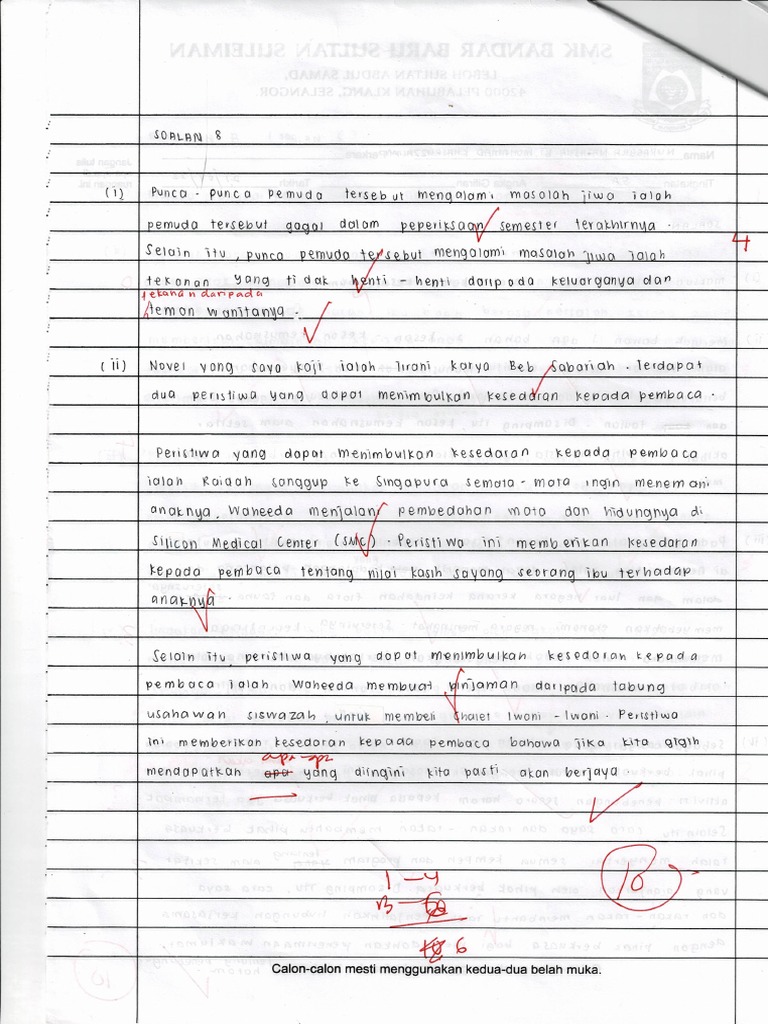 SOALAN 8
(i) Punca - punca pemuda tersebut mengalami masalah jiwa ialah
pemuda tersebut gagal dalam peperiksaan semester terakhirnya.
4
Selain itu, punca pemuda tersebut mengalami masalah jiwa ialah
tekanan yang tidak henti - henti daripada keluarganya dan
tekanan daripada
teman wanitanya.
(ii) Novel yang saya kaji ialah Tirani karya Beb Sabariah. Terdapat
dua peristiwa yang dapat menimbulkan kesedaran kepada pembaca.
Peristiwa yang dapat menimbulkan kesedaran kepada pembaca
ialah Raidah sanggup ke Singapura semata - mata ingin menemani
anaknya, Waheeda menjalani pembedahan mata dan hidungnya di
Silicon Medical Center (SMC). Peristiwa ini memberikan kesedaran
kepada pembaca tentang nilai kasih sayang seorang ibu terhadap
anaknya.
Selain itu, peristiwa yang dapat menimbulkan kesedaran kepada
pembaca ialah Waheeda membuat pinjaman daripada tabung
usahawan siswazah, untuk membeli Chalet Iwani - Iwani. Peristiwa
ini memberikan kesedaran kepada pembaca bahawa jika kita gigih
mendapatkan apa yang diingini kita pasti akan berjaya.
10
1 - 4
6
Calon-calon mesti menggunakan kedua-dua belah muka.